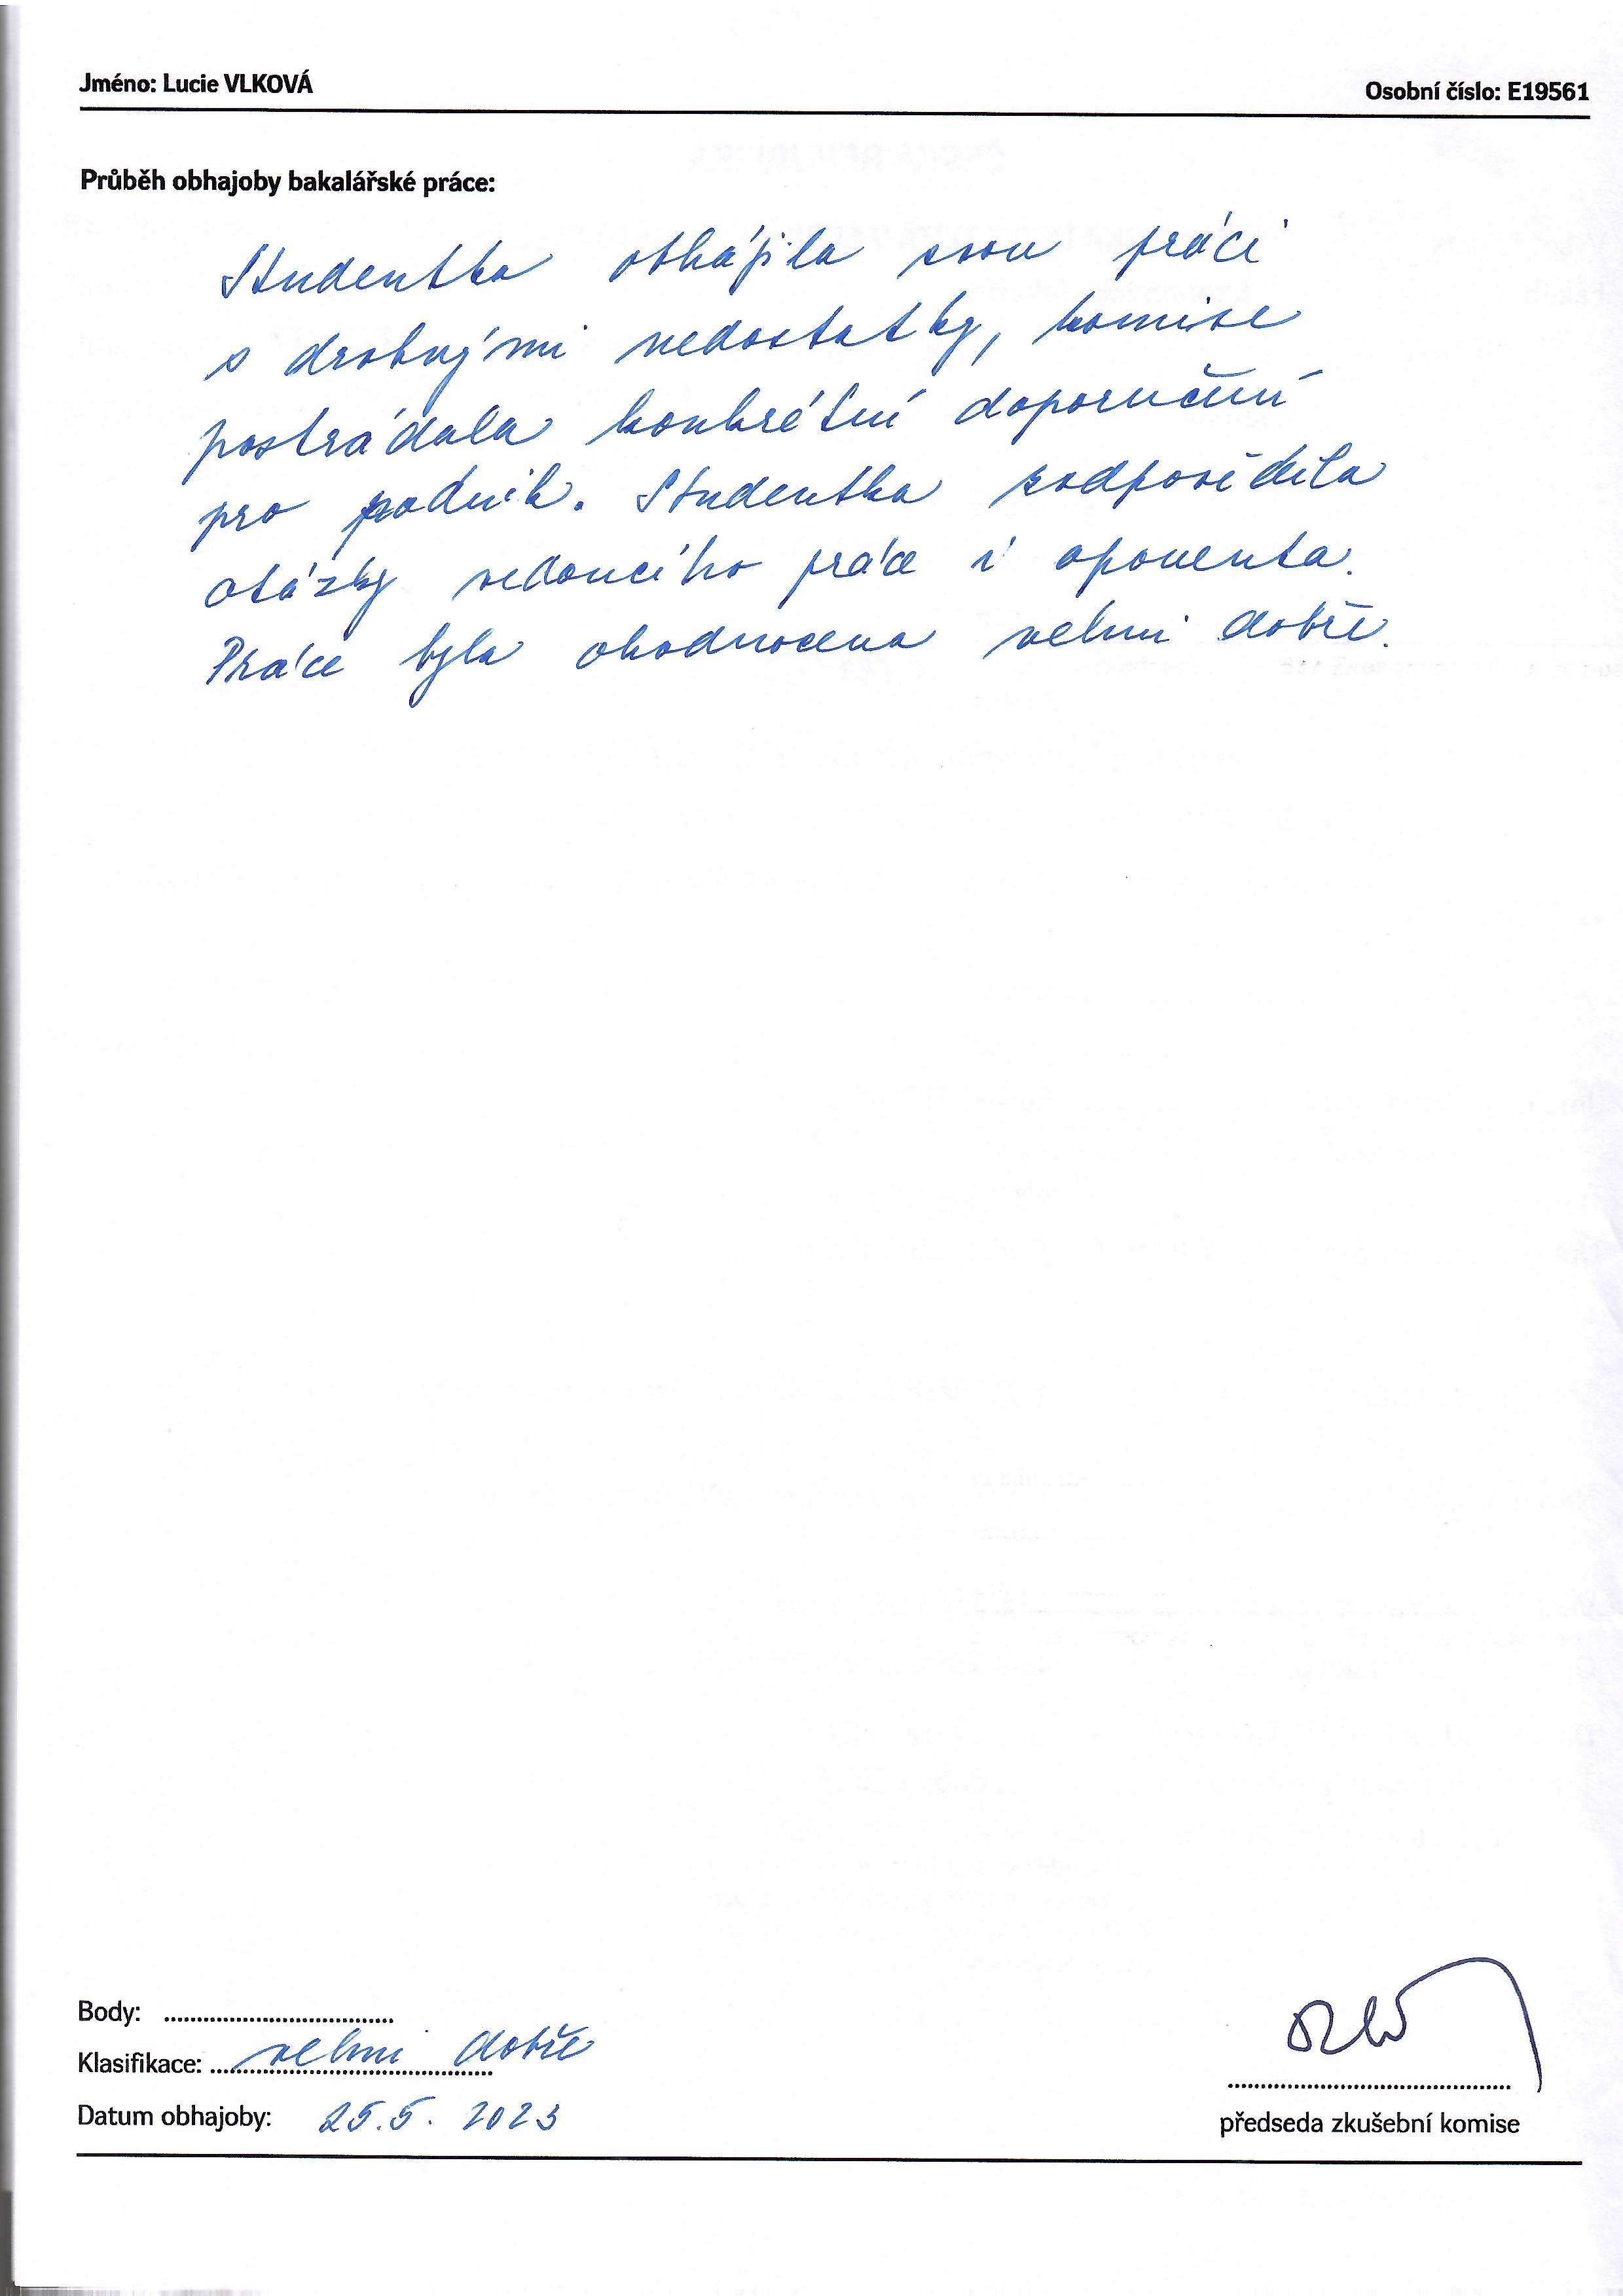 Jméno: Lucie VLKOVÁ
Osobní číslo: E19561
Průběh obhajoby bakalářské práce:
Studentka obhájila svou práci
s drobnými nedostatky, komise
postrádala konkrétní doporučení
pro podnik. Studentka zodpověděla
otázky vedoucího práce i oponenta.
Práce byla ohodnocena velmi dobře.
Body: ....................................
Klasifikace: velmi dobře
Datum obhajoby: 25.5. 2023
předseda zkušební komise